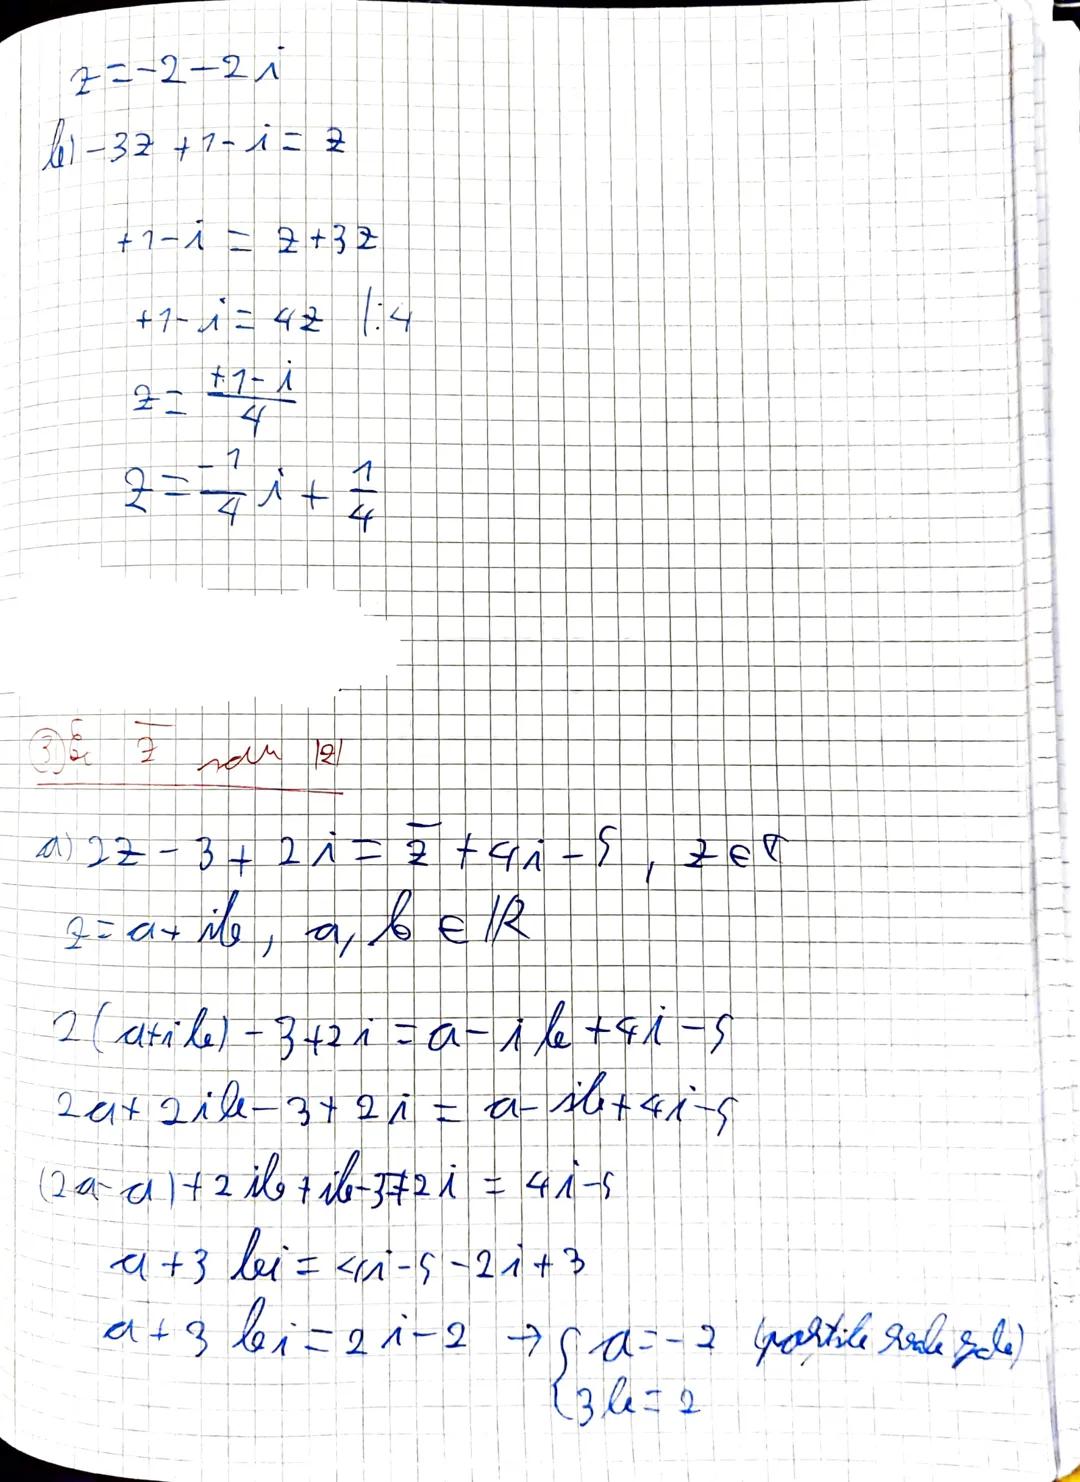 z=-2-2i
b) -3z+1-i=z
+1-i=z+3z
+1-i=4z |:4
z=\frac{+1-i}{4}
z=\frac{-1}{4}i+\frac{1}{4}
③ Ec \overline{z} sau |z|
a) 2z-3+2i=\overline{z}+4i-5, z∈ℂ
z=a+ib, a,b∈ℝ
2(a+ib)-3+2i=a-ib+4i-5
2a+2ib-3+2i=a-ib+4i-5
(2a-a)+2ib+ib-3+2i=4i-5
a+3bi=4i-5-2i+3
a+3bi=2i-2 → { a=-2 (părțile reale egale)
3b=2